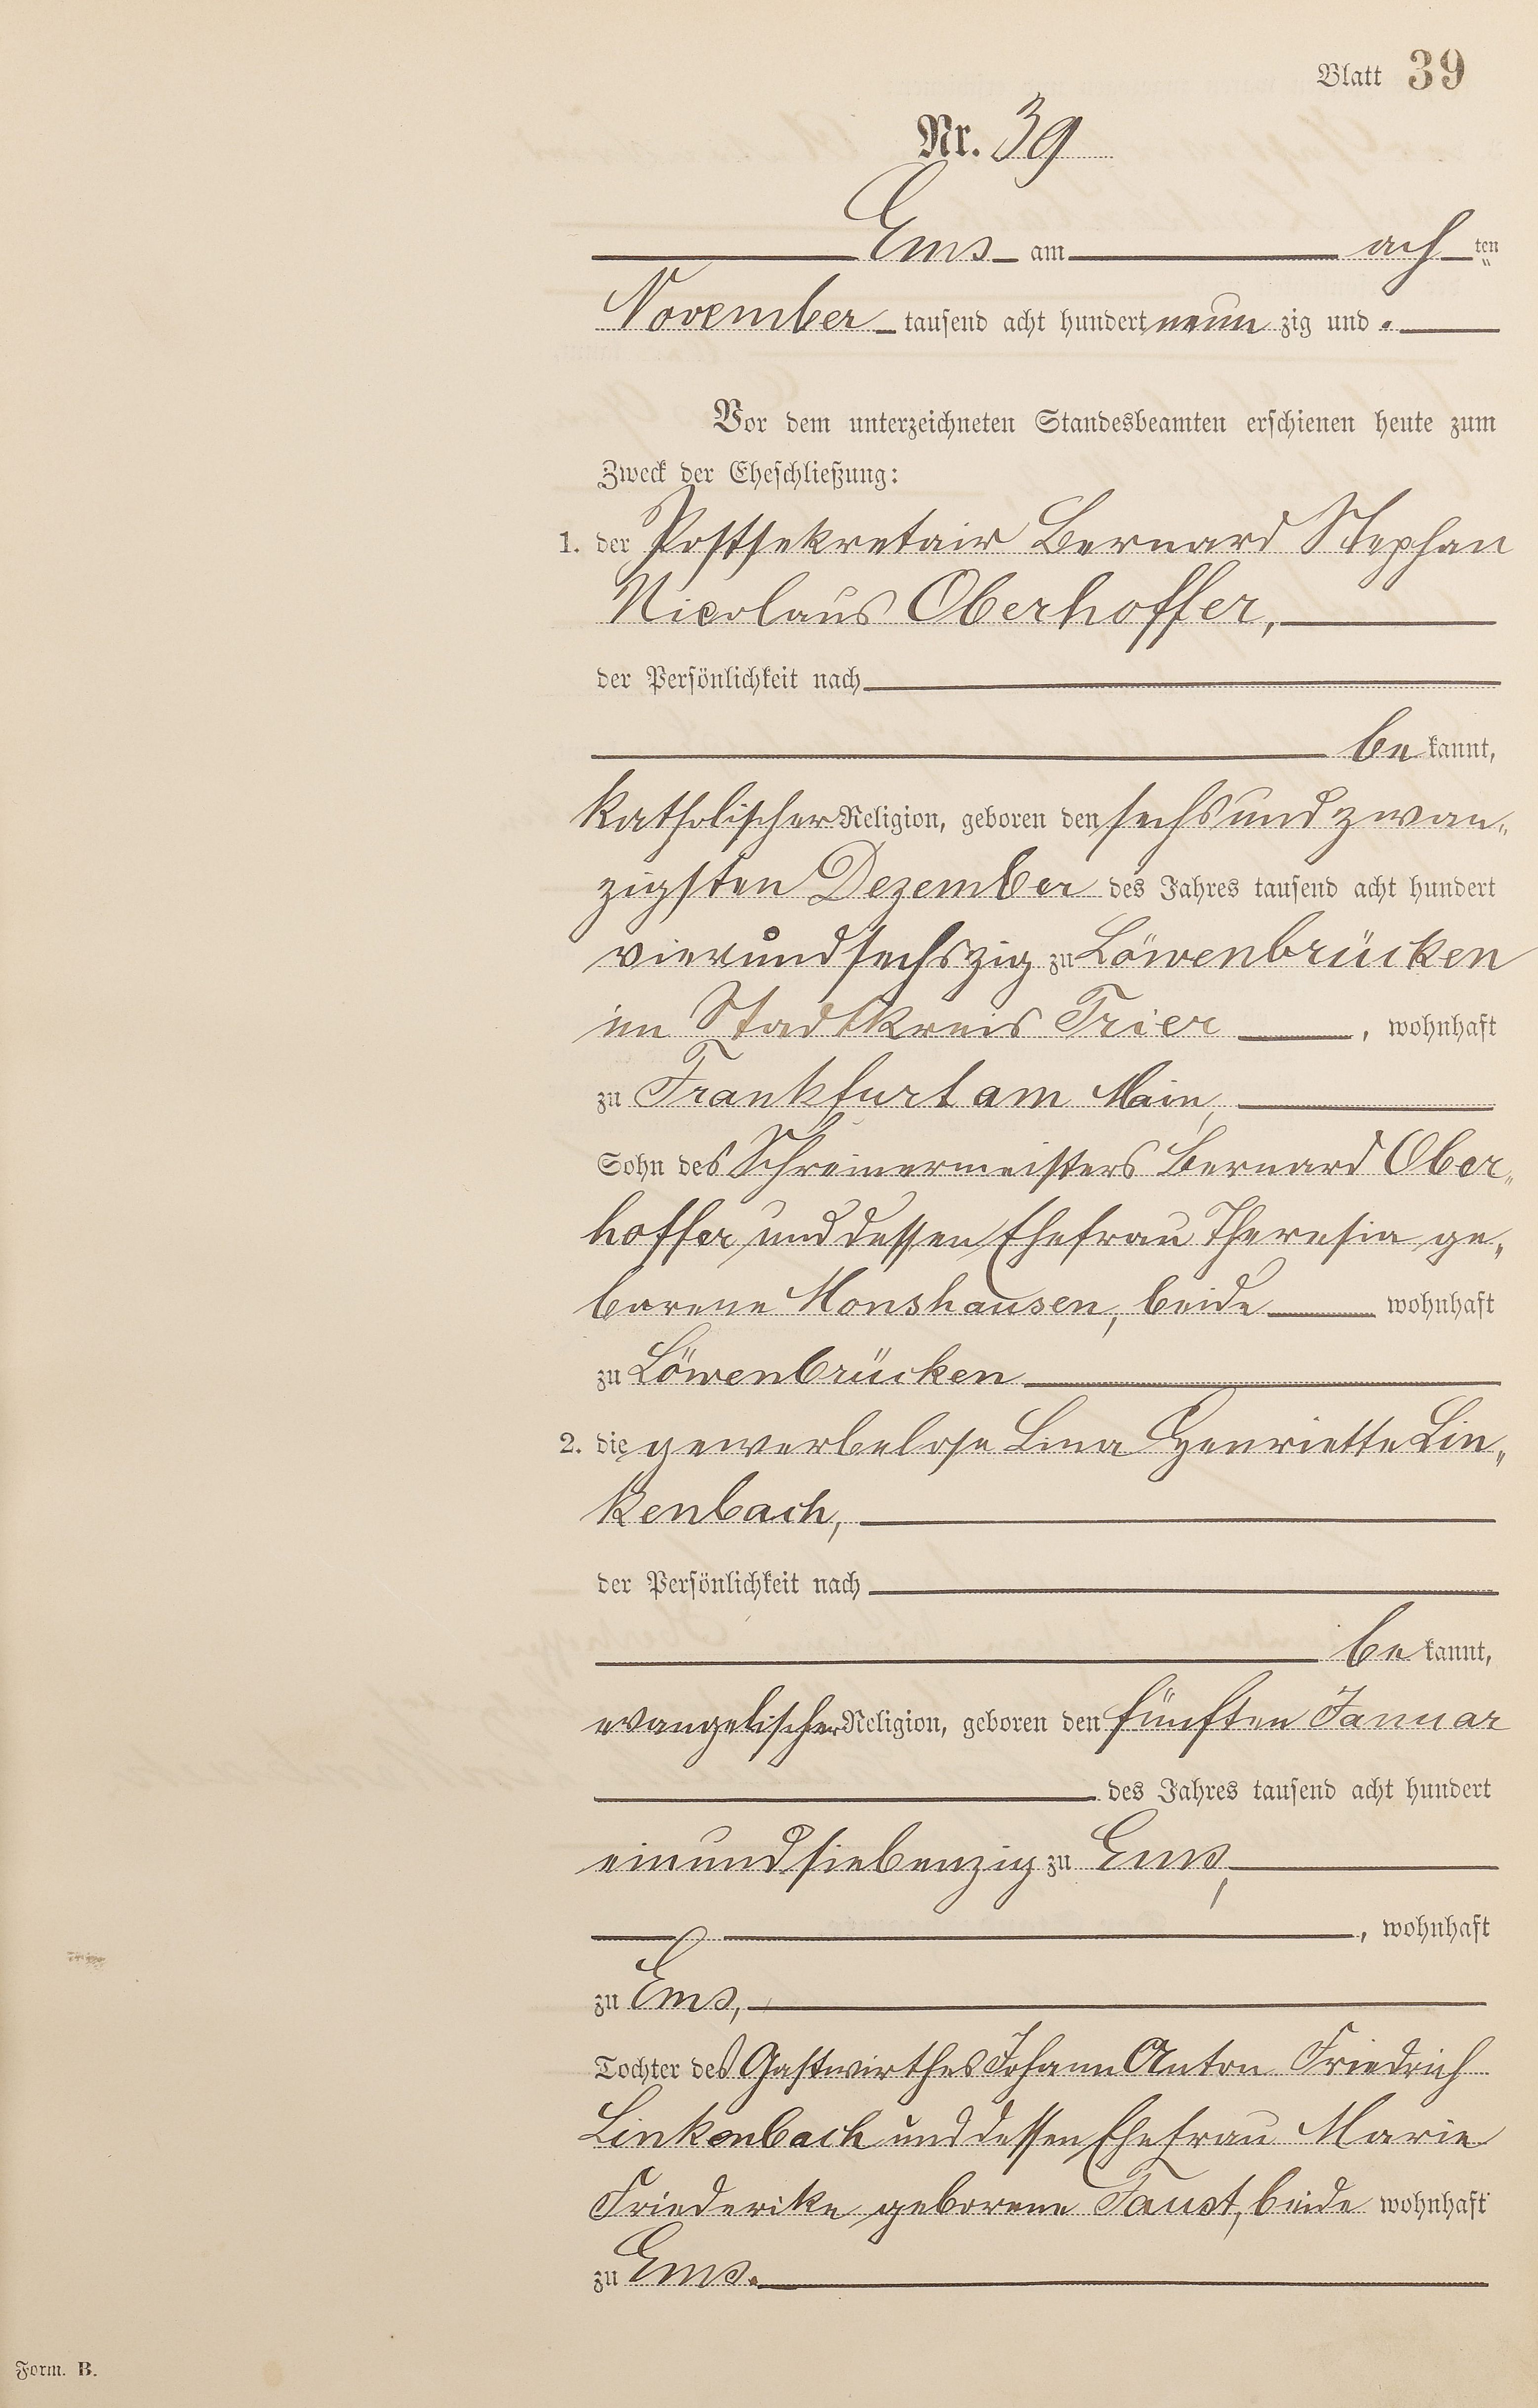 Blatt 39
Nr. 39
Ems am ach ten
November tausend acht hundert neun zig und .
Vor dem unterzeichneten Standesbeamten erschienen heute zum
Zweck der Eheschließung:
1. der Postsekretair Bernard Stephan
Nicolaus Oberhoffer,
der Persönlichkeit nach
be kannt,
katholischer Religion, geboren den sechsundzwan„
zigsten Dezember des Jahres tausend acht hundert
vierundsechszig zu Löwenbrücken
im Stadtkreis Trier , wohnhaft
zu Frankfurt am Main,
Sohn des Schreinermeisters Bernard Ober„
hoffer und dessen Ehefrau Theresia ge„
borene Monshausen, beide wohnhaft
zu Löwenbrücken
2. die gewerbelose Lina Henriette Lin„
kenbach,
der Persönlichkeit nach
be kannt,
evangelischer Religion, geboren den fünften Januar
des Jahres tausend acht hundert
einundsiebenzig zu Ems,
, wohnhaft
zu Ems,
Tochter des Gastwirthes Johann Anton Friedrich
Linkenbach und dessen Ehefrau Marie
Friederike geborene Faust, beide wohnhaft
zu Ems.
Form. B.